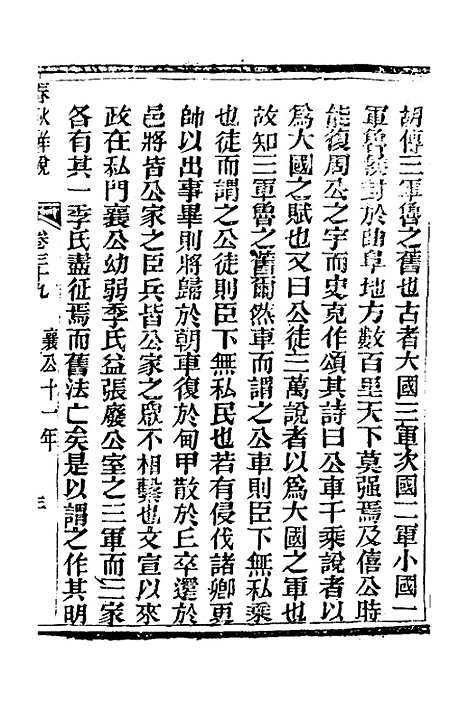 胡傳三軍魯之舊也古者大國三軍次國二軍小國一
軍魯侯封於曲阜地方數百里天下莫强焉及僖公時
能復周公之宇而史克作頌其詩曰公車千乘說者以
爲大國之賦也又曰公徒三萬說者以爲大國之軍也
故知三軍魯之舊爾然車而謂之公車則臣下無私乘
也徒而謂之公徒則臣下無私民也若有侵伐諸卿更
帥以出事畢則將歸於朝車復於甸甲散於丘卒還於
邑將皆公家之臣兵皆公家之眾不相繫也文宣以來
政在私門襄公幼弱季氏益張廢公室之三軍而三家
各有其一季氏盡征焉而舊法亡矣是以謂之作其明
春秋詳說 卷三十九 襄公十一年 三